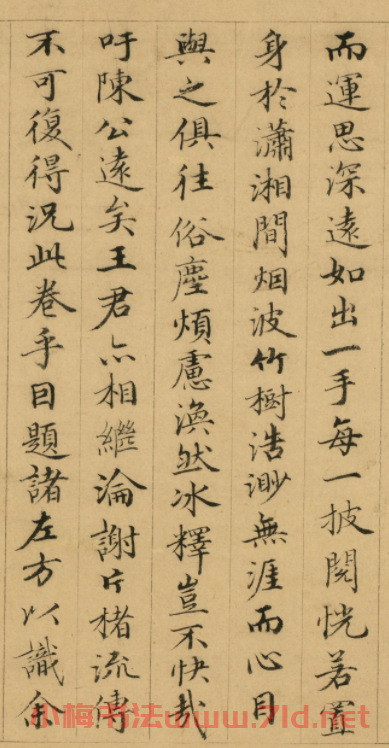 而運思深遠如出一手每一披閱恍若置
身於瀟湘間烟波竹樹浩渺無涯而心目
與之俱往俗塵煩慮渙然冰釋豈不快哉
吁陳公遠矣王君亦相繼淪謝片楮流傳
不可復得況此卷乎因題諸左方以識余
小梅书法www.7ld.net